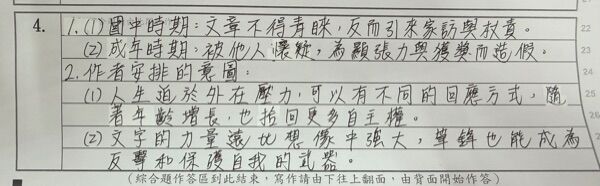 4.
1.(1)國中時期：文章不得青睞，反而引來家訪與杖責。
(2)成年時期：被他人懷疑，為顯張力與獲獎而造假。
2.作者安排的意圖：
(1)人生迫於外在壓力，可以有不同的回應方式，隨
著年齡增長，也拾回更多自主權。
(2)文字的力量遠比想像中強大，筆鋒也能成為
反擊和保護自我的武器。
(綜合題作答區到此結束，寫作請由下往上翻面，由背面開始作答)
22
23
24
25
26